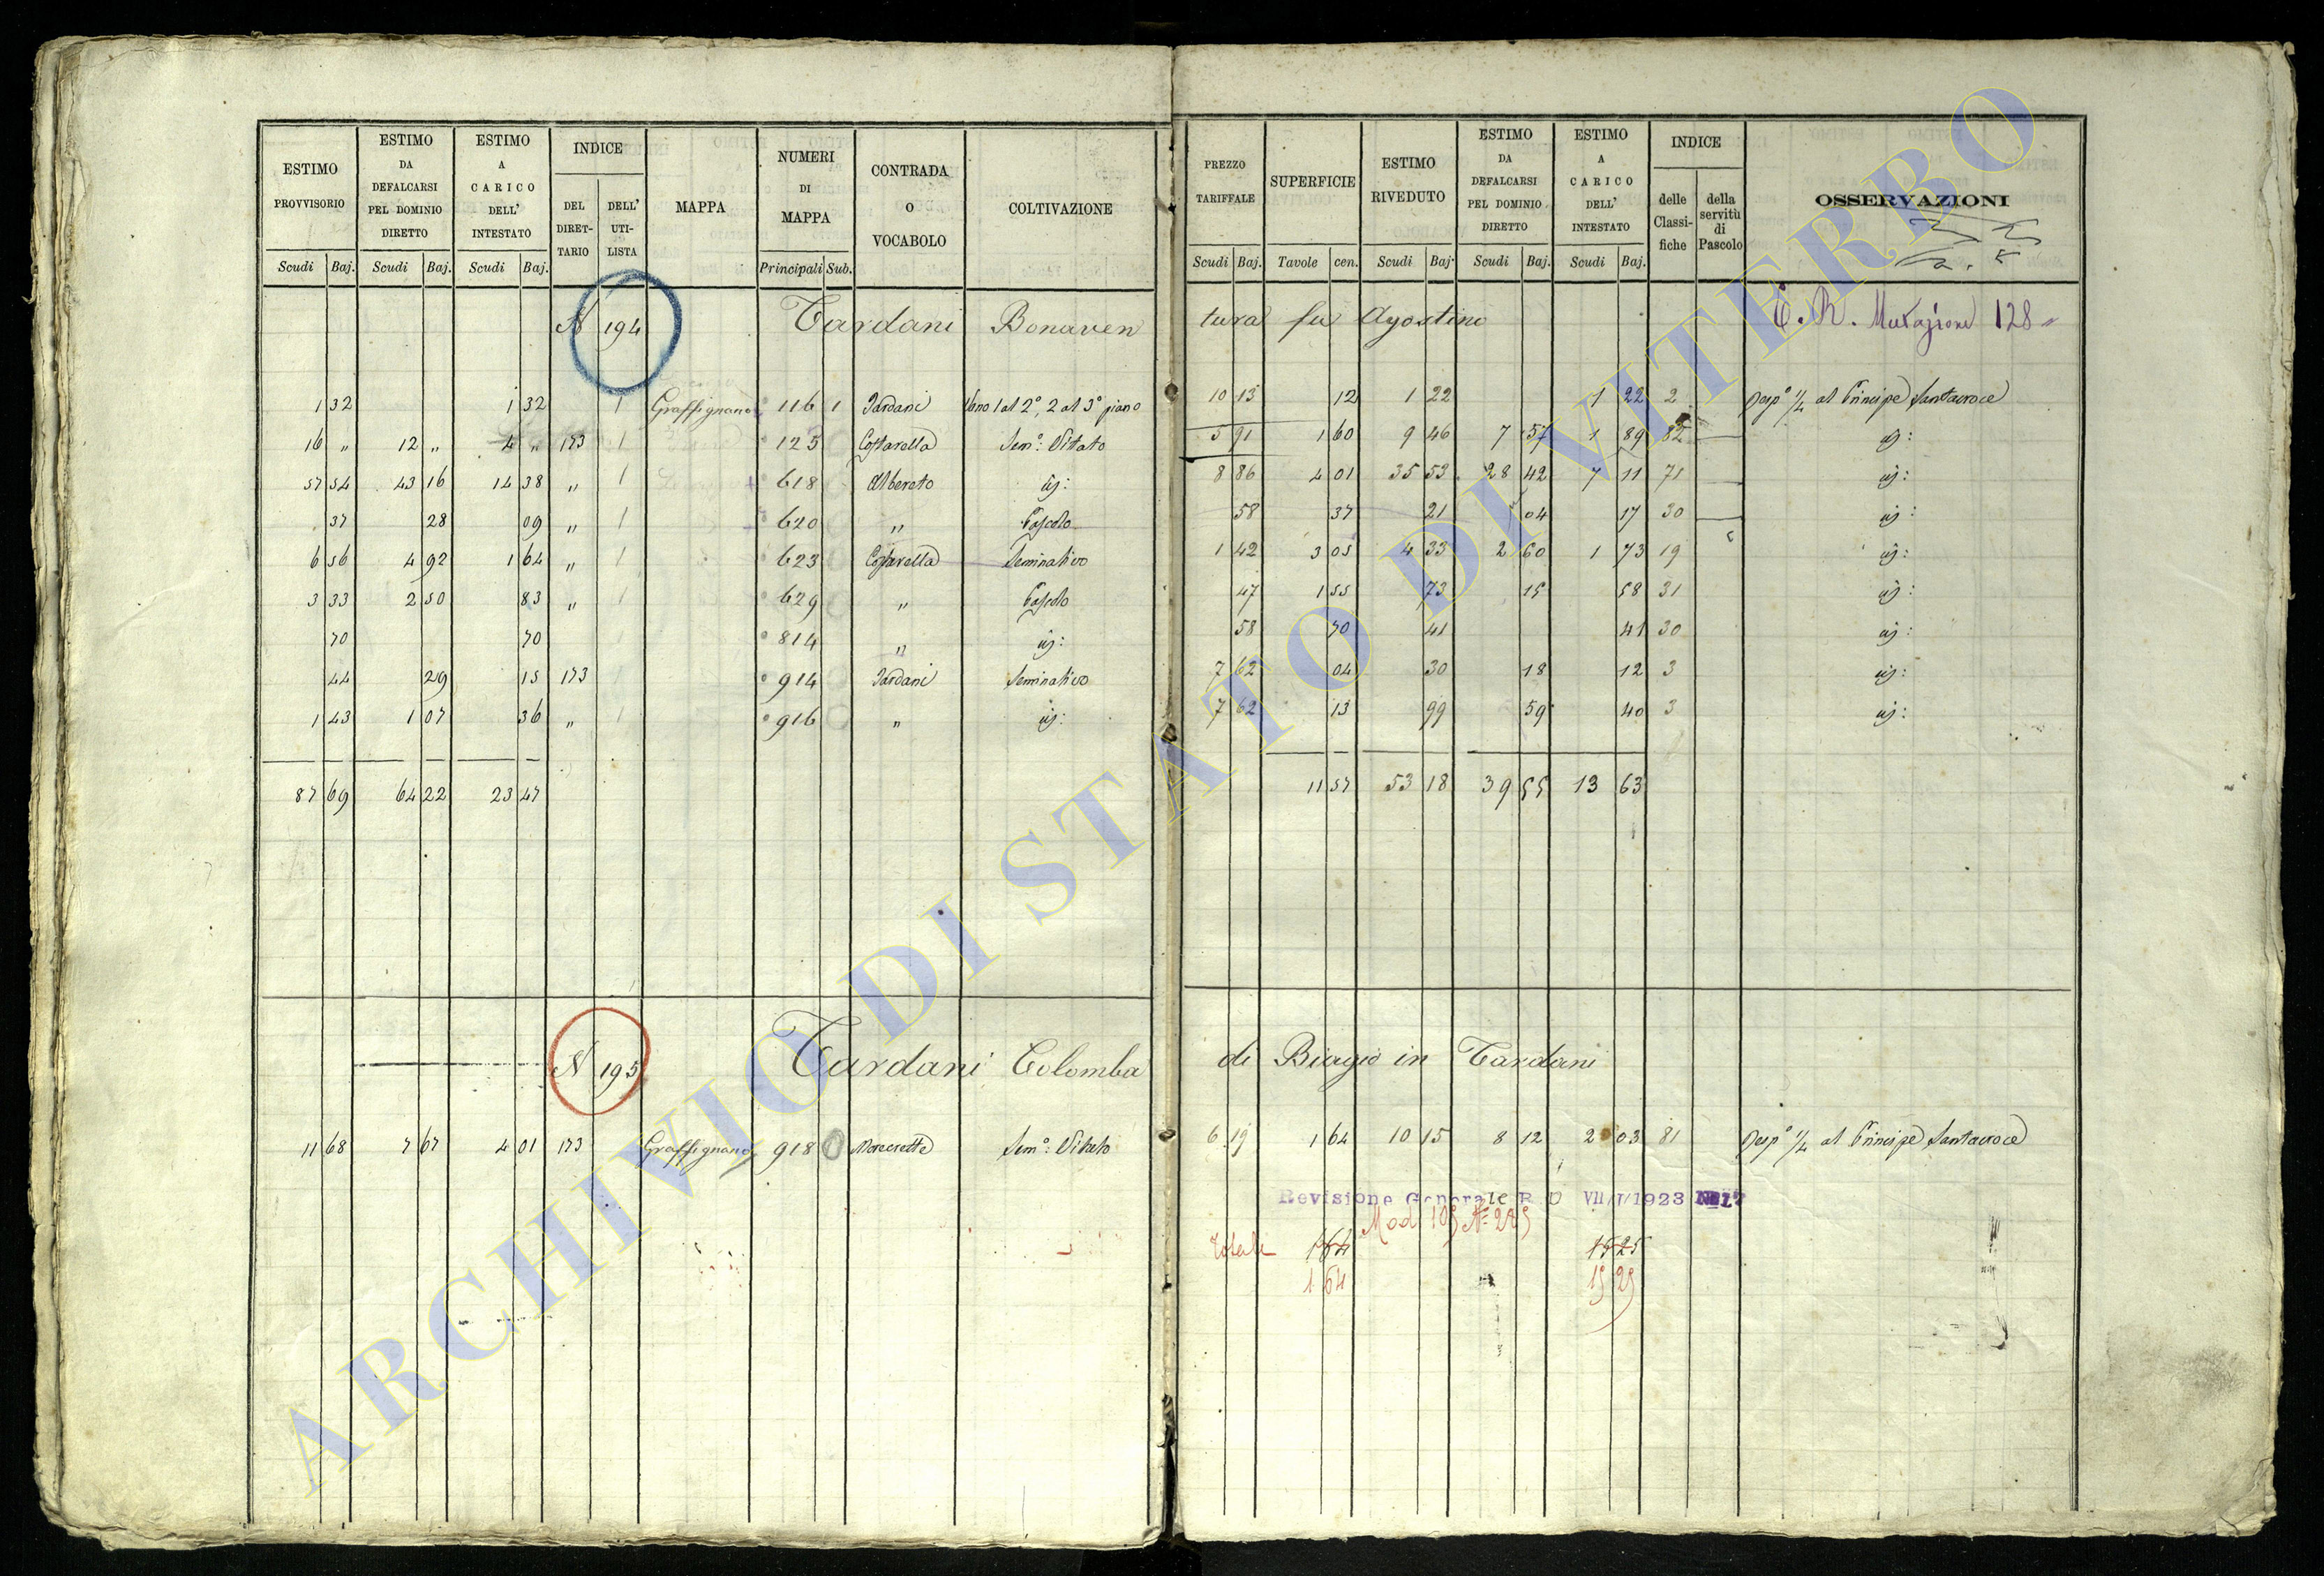 ESTIMO PROVVISORIO | ESTIMO DA DEFALCARSI PEL DOMINIO DIRETTO | ESTIMO A CARICO DELL' INTESTATO | INDICE DEL DIRET-TARIO | DELL' UTI-LISTA | MAPPA | NUMERI DI MAPPA | CONTRADA O VOCABOLO | COLTIVAZIONE | PREZZO TARIFFALE | SUPERFICIE | ESTIMO RIVEDUTO | ESTIMO DA DEFALCARSI PEL DOMINIO DIRETTO | ESTIMO A CARICO DELL' INTESTATO | INDICE delle Classi-fiche | della servitù di Pascolo | OSSERVAZIONI
Scudi Baj. | Scudi Baj. | Scudi Baj. | Principali Sub. | Scudi Baj. | Tavole cen. | Scudi Baj. | Scudi Baj. | Scudi Baj.
N 194 Tardani Bonaventura fu Agostino Mutazione 128
1 32 | 1 32 | 1 | Graffignano | 116 1 | Tardani | Vano 1 al 2°, 2 al 3° piano | 10 13 | 12 | 1 22 | 1 22 | 2 | Risp° 1/4 al Principe Santacroce
16 " | 12 " | 4 " | 173 | 1 | 125 | Costarella | Sem°: Vitato | 5 91 | 1 60 | 9 46 | 7 57 | 1 89 | 82 | id:
57 54 | 43 16 | 14 38 | " | 1 | 618 | Albereto | id: | 8 86 | 4 01 | 35 53 | 28 42 | 7 11 | 71 | id:
37 | 28 | 09 | " | 1 | 620 | " | Pascolo | 58 | 37 | 21 | 04 | 17 | 30 | id:
6 56 | 4 92 | 1 64 | " | 1 | 623 | Costarella | Seminativo | 1 42 | 3 05 | 4 33 | 2 60 | 1 73 | 19 | id:
3 33 | 2 50 | 83 | " | 1 | 629 | " | Pascolo | 47 | 1 55 | 73 | 15 | 58 | 31 | id:
70 | 70 | 814 | " | id: | 58 | 70 | 41 | 41 | 30 | id:
44 | 29 | 15 | 173 | 914 | Tardani | Seminativo | 7 62 | 04 | 30 | 18 | 12 | 3 | id:
1 43 | 1 07 | 36 | " | 1 | 916 | " | id: | 7 62 | 13 | 99 | 59 | 40 | 3 | id:
87 69 | 64 22 | 23 47 | 11 57 | 53 18 | 39 55 | 13 63
N 195 Tardani Colomba di Biagio in Tardani
11 68 | 7 67 | 4 01 | 173 | Graffignano | 918 | Sem°: Vitato | 6 19 | 1 64 | 10 15 | 8 12 | 2 03 | 81 | Risp° 1/4 al Principe Santacroce
Revisione Generale R D VII/I/1923 N° 17
Mod 109 N°
Totale 1 64 | 15 25
1 64 | 15 25
ARCHIVIO DI STATO DI VITERBO